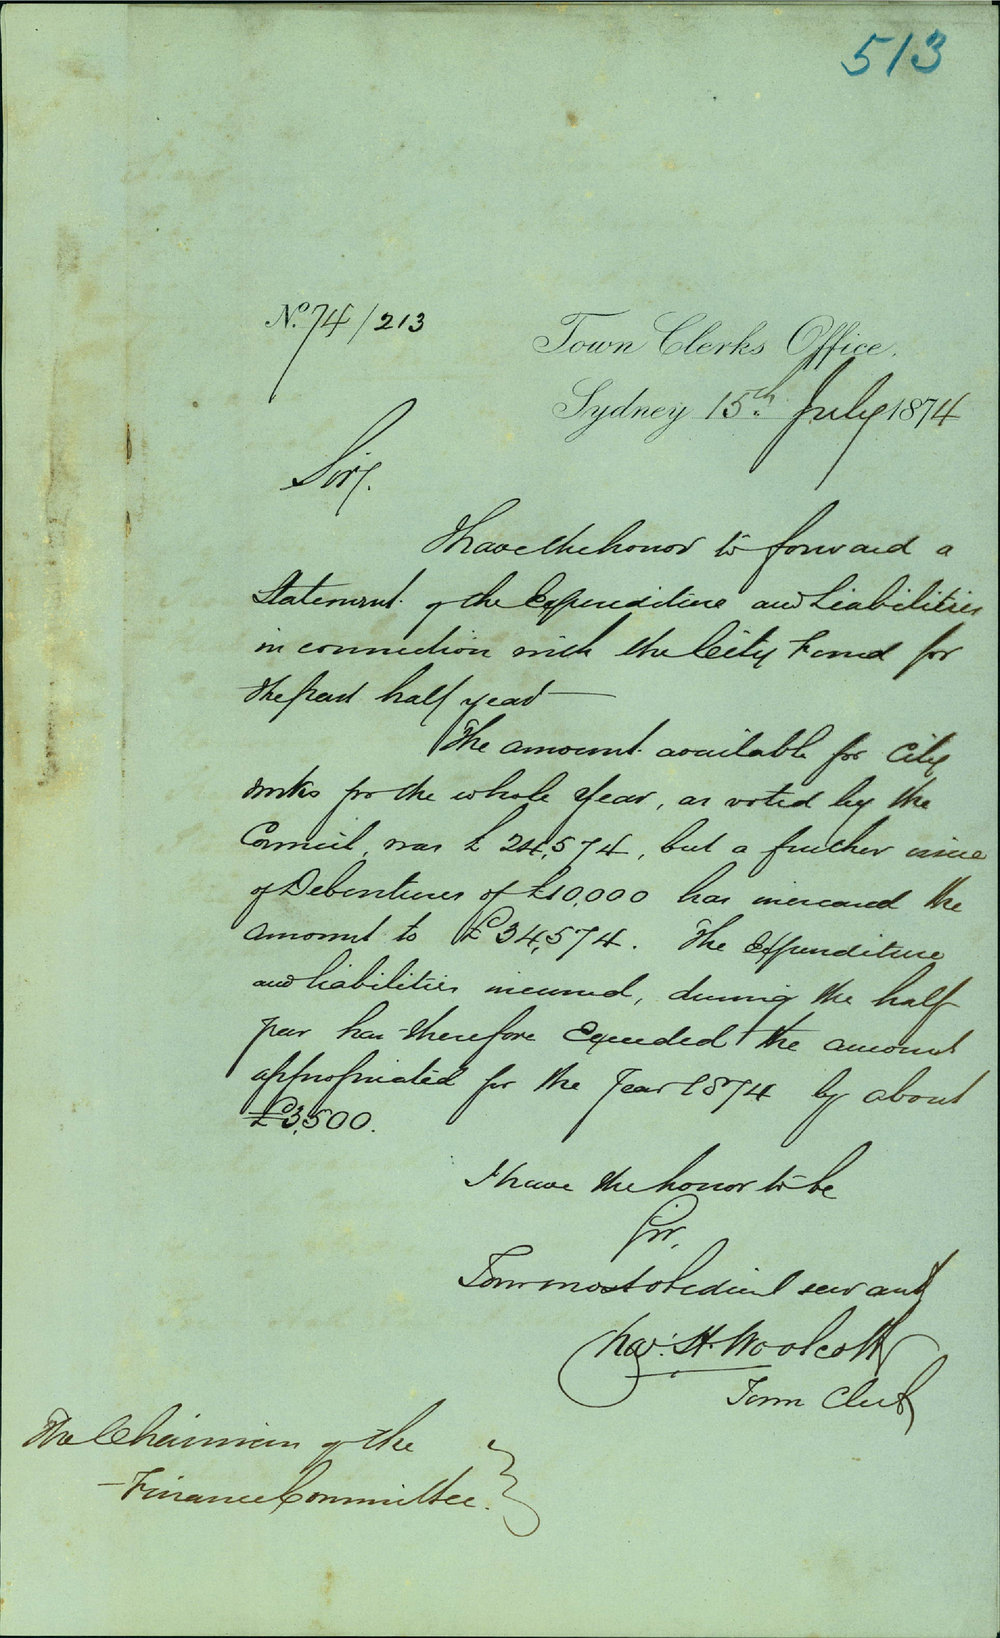 513
No. 74/213
Town Clerks Office.
Sydney 15th July 1874
Sir,
I have the honor to forward a
Statement of the Expenditure and Liabilities
in connection with the City Fund for
the past half year —
The amount available for City
works for the whole Year, as voted by the
Council, was £24,574, but a further issue
of Debentures of £10,000 has increased the
amount to £34,574. The Expenditure
and liabilities incurred, during the half
year has therefore Exceeded the amount
appropriated for the Year 1874 by about
£3,500.
I have the honor to be
Sir,
Your most obedient servant
Chas. H. Woolcott
Town Clerk
The Chairman of the
Finance Committee.